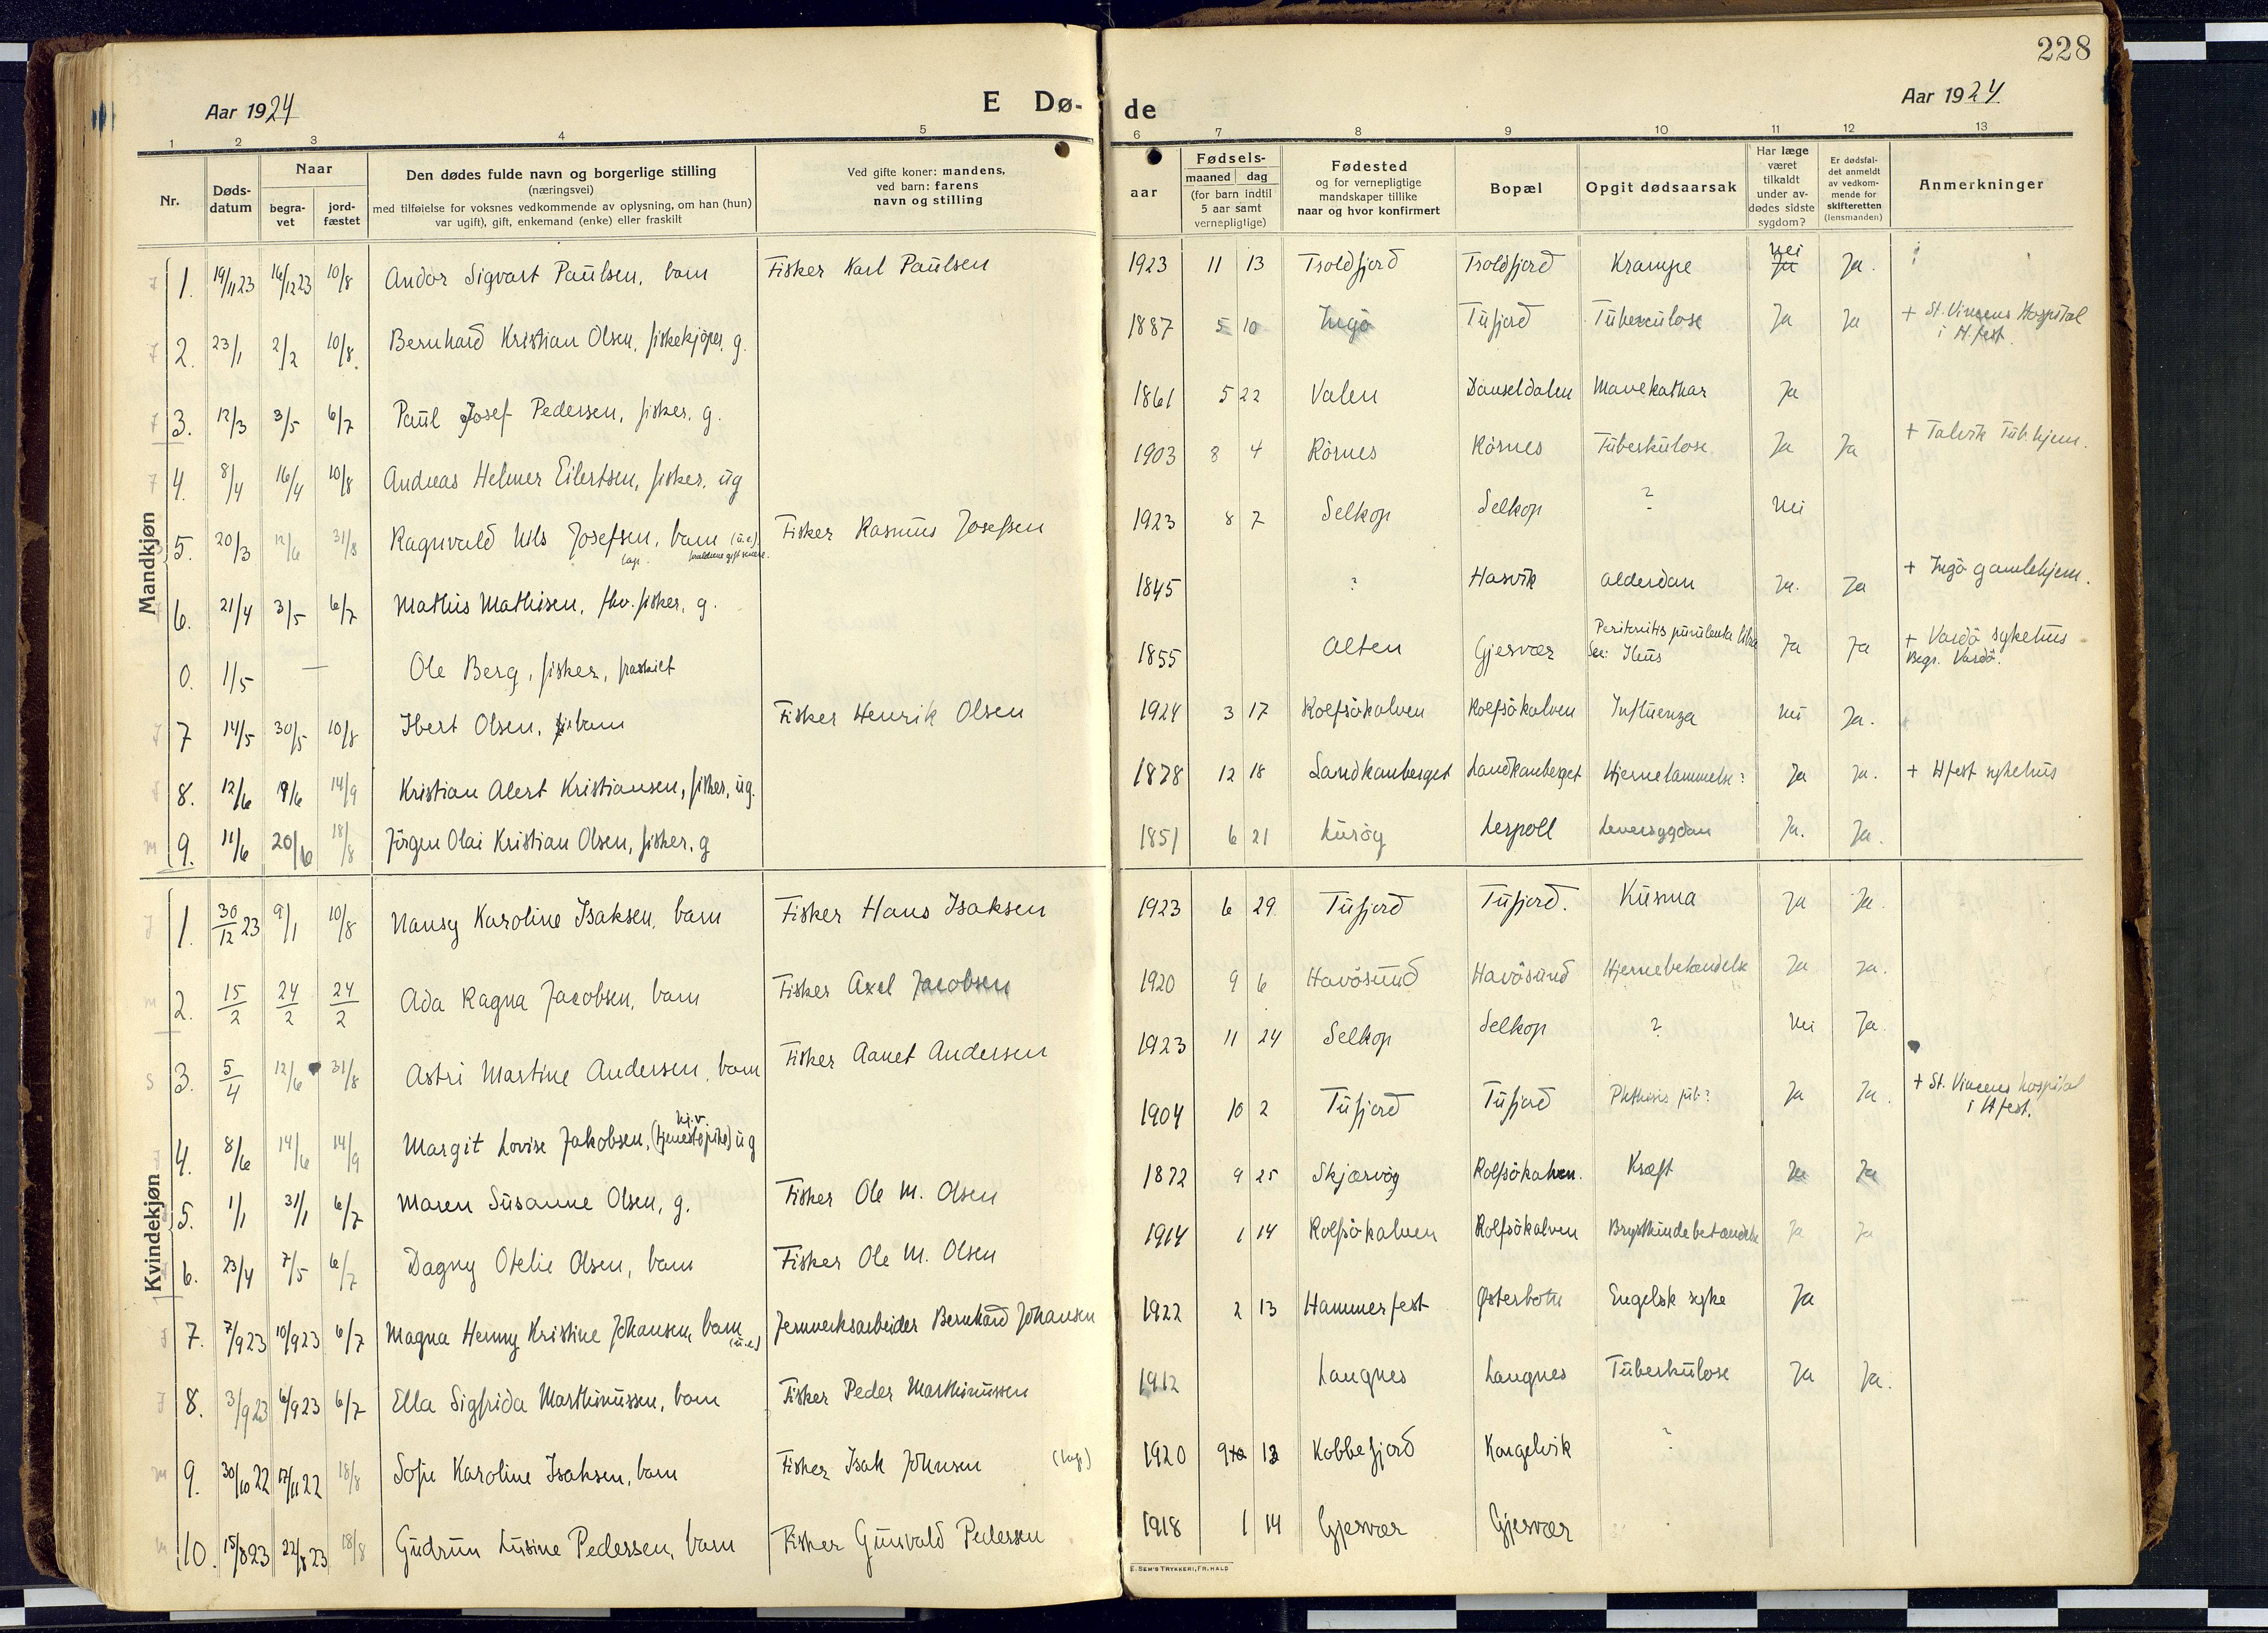 228
Aar 1924
E Dø-
de
Aar 1924
1 2 3 4 5 6 7 8 9 10 11 12 13
Nr.
Døds-
datum
Naar
begra-
vet
jord-
fæstet
Den dødes fulde navn og borgerlige stilling
(næringsvei)
med tilføielse for voksnes vedkommende av oplysning, om han (hun)
var ugift), gift, enkemand (enke) eller fraskilt
Ved gifte koner: mandens,
ved barn: farens
navn og stilling
aar
Fødsels-
maaned dag
(for barn indtil
5 aar samt
vernepligtige)
Fødested
og for vernepligtige
mandskaper tillike
naar og hvor konfirmert
Bopæl
Opgit dødsaarsak
Har læge
været
tilkaldt
under av-
dødes sidste
sygdom?
Er dødsfal-
det anmeldt
av vedkom-
mende for
skifteretten
(lensmanden)
Anmerkninger
Mandkjøn
1. 19/11 23 16/12 23 10/8 Andor Sigvart Paulsen, barn Fisker Karl Paulsen 1923 11 13 Troldfjord Troldfjord Krampe nei Ja Ja.
2. 23/1 2/2 10/8. Bernhard Kristian Olsen, fiskekjöper, g. 1887 5 10 Ingö Tufjord Tuberculose Ja Ja + St. Vincens Hospital
i H.fest.
3. 12/3 3/5 6/7 Paul Josef Pedersen, fisker, g. 1861 5 22 Valen Dønseldalen Mavekathar Ja
4. 8/4 16/4 10/8 Andreas Helmer Eilertsen, fisker, ug 1903 8 4 Körnes Körnes Tuberkulose Ja Ja + Talvik Tub.hjem.
5. 20/3 12/6 31/8 Ragnvald Nils Josefsen, barn (u.e.) Fisker Rasmus Josefsen 1923 8 7 Selkop Selkop ? nei
lap. foreldrene gift senere.
6. 21/4 3/5 6/7 Mathis Mathisen, fhv. fisker, g. 1845 ? Hasvik alderdom Ja. Ja + Ingö gamlehjem.
0. 1/5 — Ole Berg, fisker, fraskilt 1855 Alten Gjesvær Peritonitis purulenta
Ileus Ja Ja + Vardö sykehus
Begr. Vardö.
7 14/5 30/5 10/8 Ibert Olsen, barn Fisker Henrik Olsen 1924 3 17 Rolfsökalven Rolfsökalven Influenza nei Ja.
8. 12/6 19/6 14/9 Kristian Alert Kristiansen, fisker, ug. 1878 12 18 Sandkanberget Sandkanberget Hjernelammelse? Ja Ja. + Hfest sykehus
9. 11/6 20/6 18/8 Jörgen Olai Kristian Olsen, fisker, g 1851 6 21 Kuröy Lerpoll Leversygdom Ja. Ja.
Kvindekjøn
1. 30/12 23 9/1 10/8 Nansy Karoline Isaksen, barn Fisker Hans Isaksen 1923 6 29. Tufjord Tufjord. Kusma Ja Ja.
2. 15/2 24/2 24/2 Ada Ragna Jacobsen, barn Fisker Axel Jacobsen 1920 9 6 Havösund Havösund Hjernebetændelse Ja Ja.
3. 5/4 12/6 31/8 Astri Martine Andersen, barn Fisker Aanet Andersen 1923 11 24 Selkop Selkop ? nei Ja.
4. 8/6 14/6 14/9 Margit Lovise Jakobsen, (tjenestepike) ug 1904 10 2 Tufjord Tufjord Phthisis pul.? Ja Ja. + St. Vincens hospital
i Hfest.
5. 1/1 31/1 6/7 Maren Susanne Olsen, g. Fisker Ole M. Olsen 1872 9 25 Skjærvöy Rolfsökalven. Kræft Ja Ja
6. 23/4 7/5 6/7 Dagny Otelie Olsen, barn Fisker Ole M. Olsen 1914 1 14 Rolfsökalven Rolfsökalven Brysthindebetændelse Ja Ja
7. 7/9 23 10/9 23 6/7 Magna Henny Kristine Johansen, barn (u.e.) Jernverksarbeider Bernhard Johansen 1922 2 13 Hammerfest Østerbotn Engelsk syke Ja
8. 3/9 23 6/9 23 6/7 Ella Sigfrida Marthinussen, barn Fisker Peder Marthinussen 1912 Langnes Langnes Tuberkulose Ja Ja.
9. 30/10 22 17/11 22 18/8 Sofie Karoline Isaksen, barn Fisker Isak Johnsen (lap) 1920 9 13 Kobbefjord Kongelvik ?
10. 15/8 23 22/8 23 18/8 Gudrun Lusine Pedersen, barn Fisker Gunvald Pedersen 1918 1 14 Gjesvær Gjesvær
E. SEM'S TRYKKERI, FR.HALD